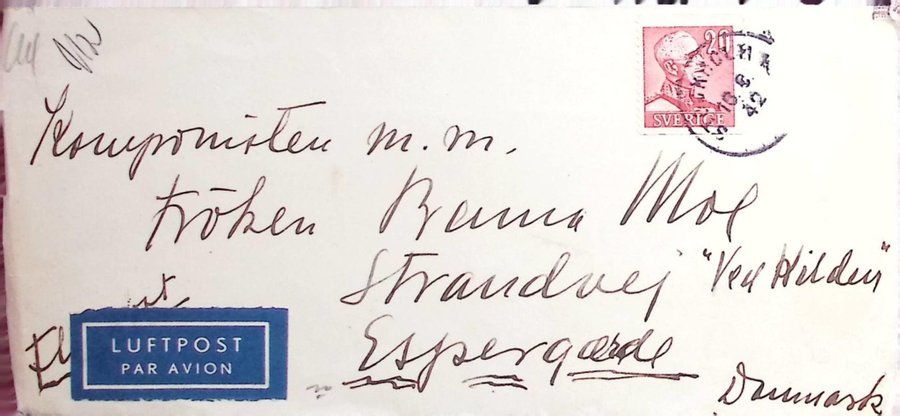 20
SVERIGE
STOCKHOLM
18 8
42
Komponisten m.m.
Fröken Benna Moe
Strandvej "Ved Kilden"
Espergærde
Danmark
LUFTPOST
PAR AVION